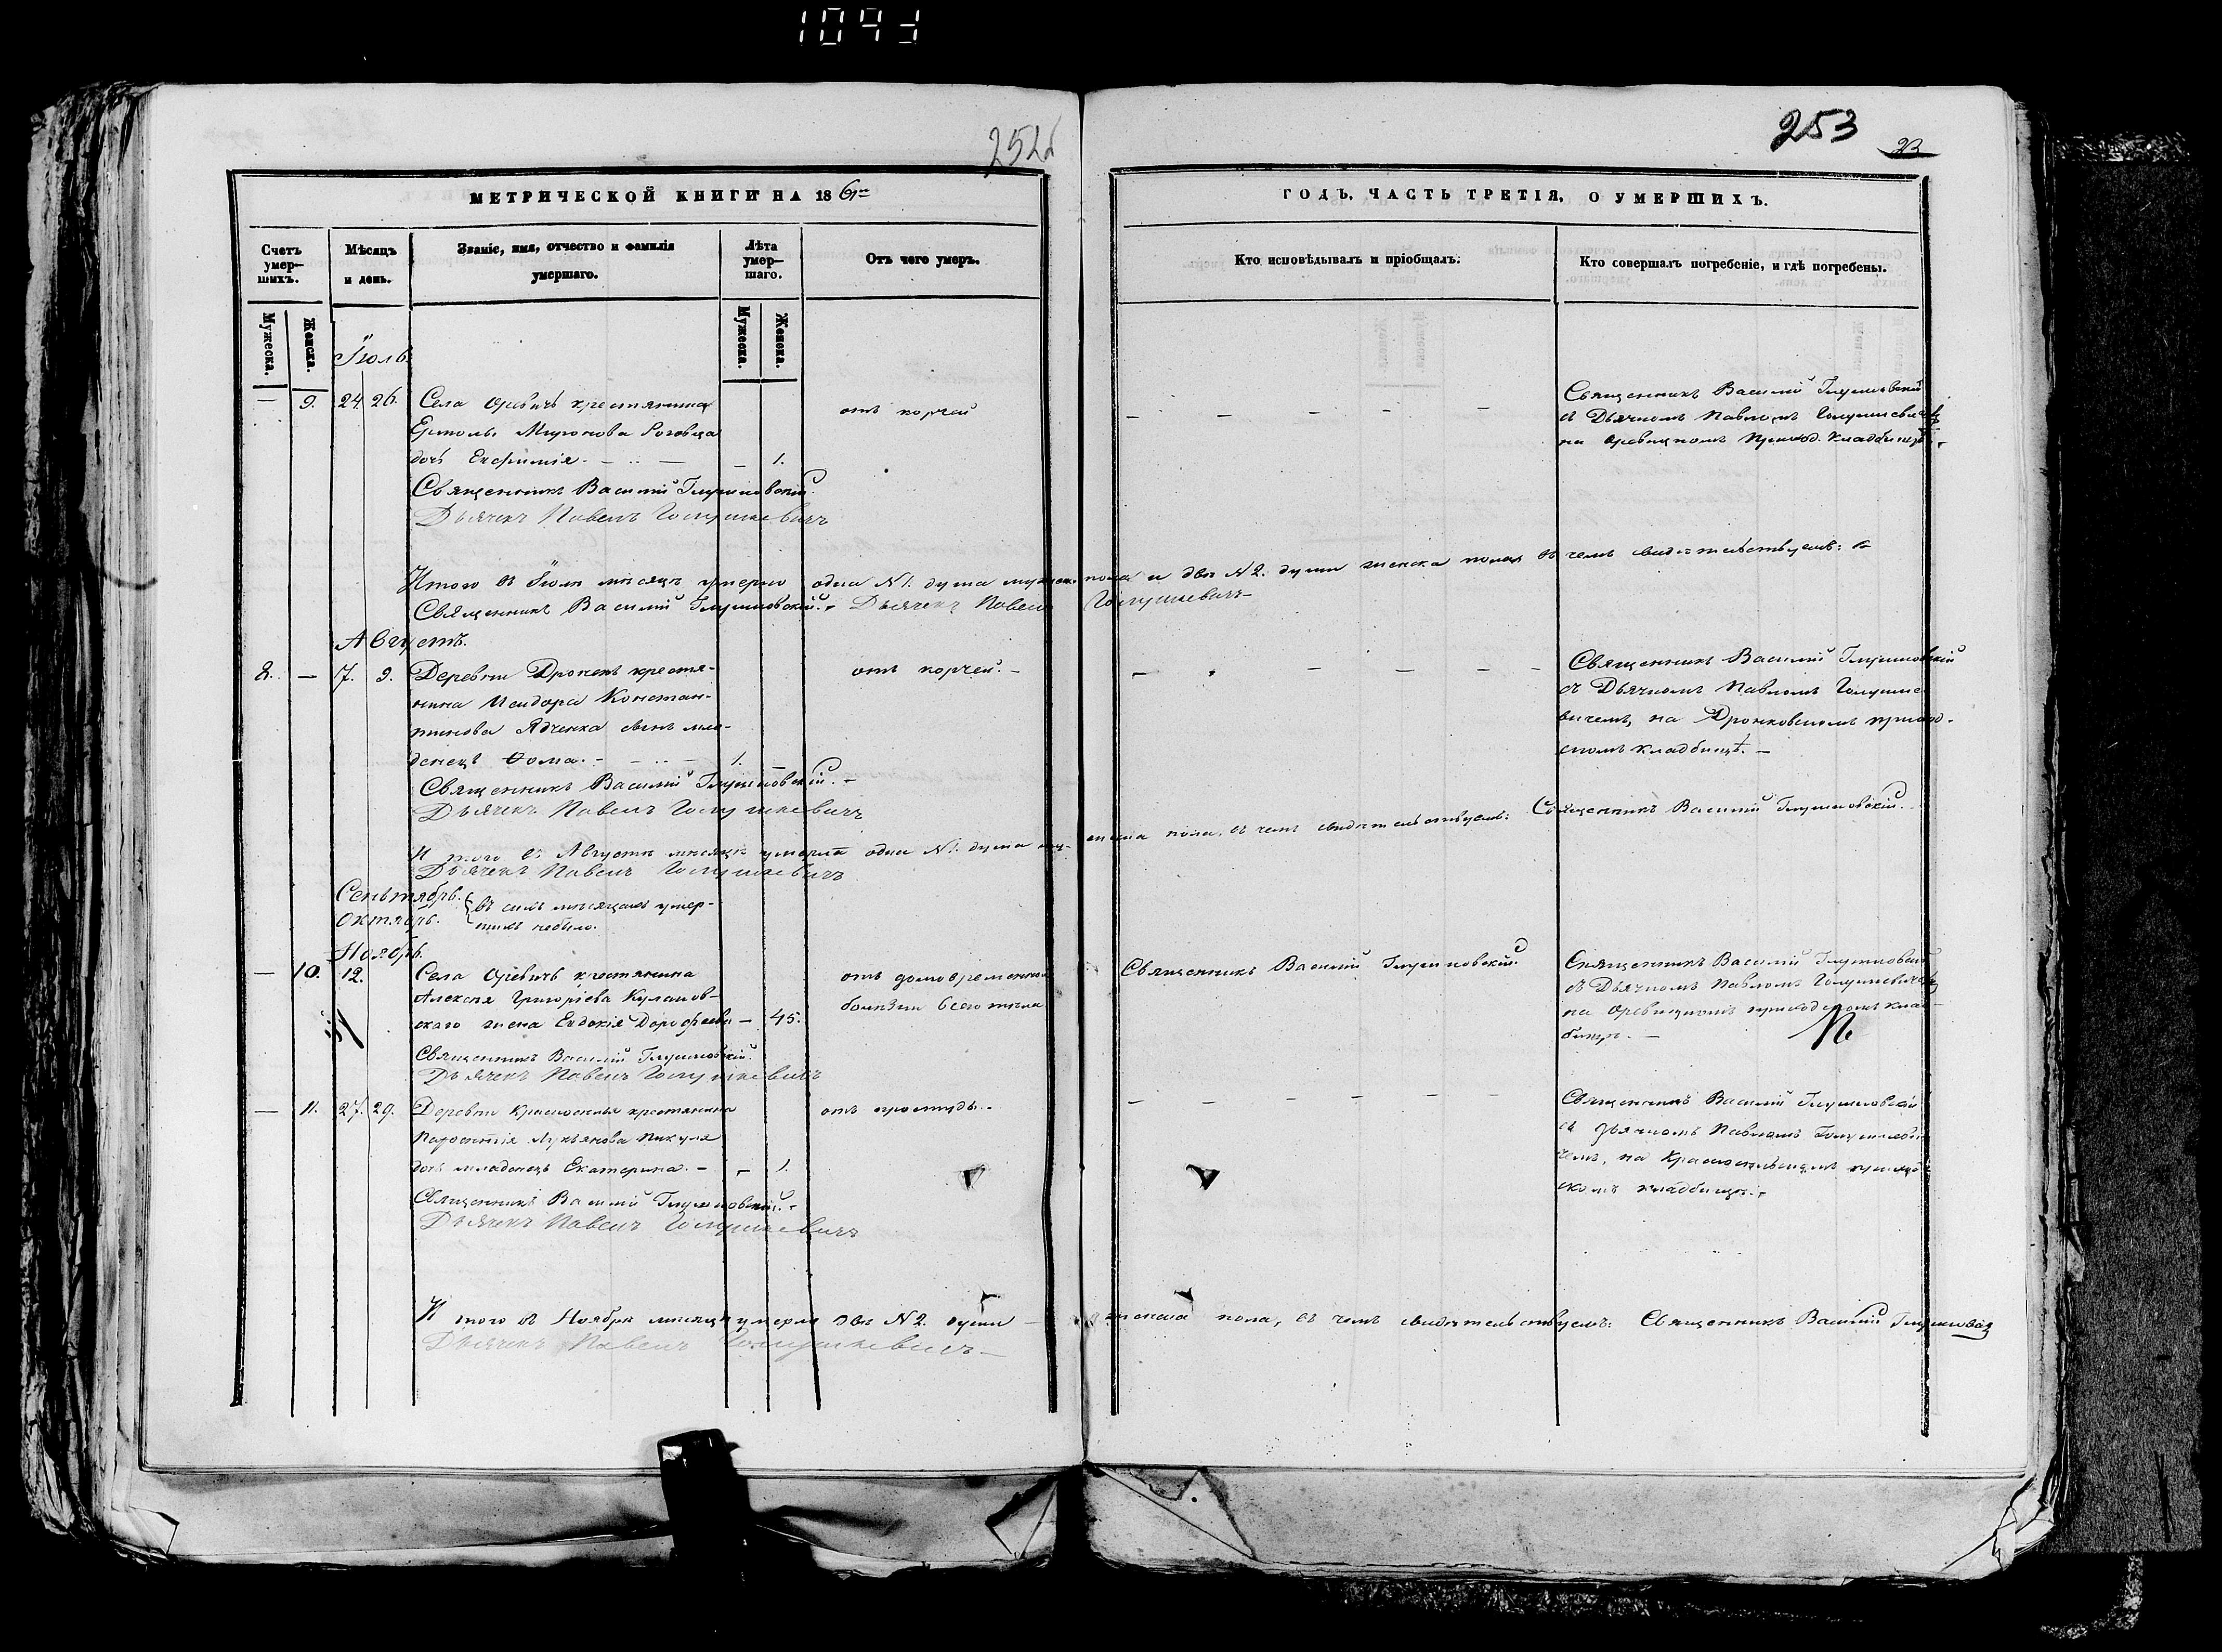 1093
252
253
23
МЕТРИЧЕСКОЙ КНИГИ НА 1861
ГОДЪ, ЧАСТЬ ТРЕТІЯ, О УМЕРШИХЪ.
Счетъ умер— шихъ.
Мѣсяцъ и день.
Званіе, имя, отчество и фамилія умершаго.
Лѣта умер— шаго.
Отъ чего умеръ.
Кто исповѣдывалъ и пріобщалъ.
Кто совершалъ погребеніе, и гдѣ погребены.
Мужеска. Женска.
Мужеска. Женска.
Іюль.
— 9. 24. 26. Села Оревичъ крестянина
Ермолы Миронова Роговца
дочь Евфимія. — 1.
отъ корчей
Священникъ Василій Глушковскій
съ Дьячкомъ Павломъ
на Оревицкомъ приход. кладбищѣ.
Священникъ Василій Глушковскій.
Дьячекъ Павелъ Голушкевичъ
Итого въ Іюлѣ мѣсяцѣ умерло одна №1. душа мужеск. пола и двѣ №2. души женска пола, въ чемъ свидѣтельствуемъ:
Священникъ Василій Глушковскій. Дьячекъ Павелъ Голушкевичъ
Августъ.
8. — 7. 9. Деревни Дронекъ крестя-
нина Исидора Констан-
тинова Ядченка сынъ мла-
денецъ Ѳома. — 1. —
отъ корчей. —
Священникъ Василій Глушковскій
съ Дьячкомъ Павломъ Голушке-
вичемъ, на Дронковскомъ приход-
скомъ кладбищѣ. —
Священникъ Василій Глушковскій. —
Дьячекъ Павелъ Голушкевичъ
И того въ Августѣ мѣсяцѣ умерла одна №1. душа му- жеска пола, въ чемъ свидѣтельствуемъ: Священникъ Василій Глушковскій.
Дьячекъ Павелъ Голушкевичъ
Сентябрь.
Октябрь.
въ сихъ мѣсяцахъ умер-
шихъ небыло.
Ноябрь.
— 10. 12. Села Оревичъ крестянина
Алексея Григоріева Кулаков-
скаго жена Евдокія Дорофеева — 45.
отъ долговременной
болѣзни всего тѣла
Священникъ Василій Глушковскій.
Священникъ Василій Глушковскій
съ Дьячкомъ Павломъ
на Оревицкомъ приходскомъ клад-
бищѣ. —
Священникъ Василій Глушковскій.
Дьячекъ Павелъ Голушкевичъ
— 11. 27. 29. Деревни Красноселья крестянина
Лукьянова Пикуля
дочь младенецъ Екатерина. — 1.
отъ простуды. —
Священникъ Василій Глушковскій
съ Дьячкомъ Павломъ Голушкеви-
чемъ, на Красносельскомъ приход-
скомъ кладбищѣ.
Священникъ Василій Глушковскій.
Дьячекъ Павелъ Голушкевичъ
И того въ Ноябрѣ мѣсяцѣ умерло двѣ №2. души — женска пола, въ чемъ свидѣтельствуемъ: Священникъ Василій
Дьячекъ Павелъ Голушкевичъ —